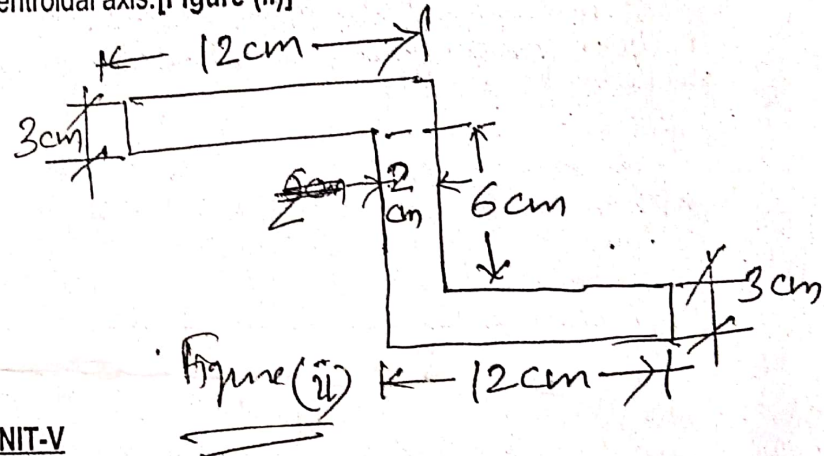 entroidal axis.[Figure (ii)]
12cm
3cm
2
cm
6cm
3cm
Figure (ii)
12cm
NIT-V